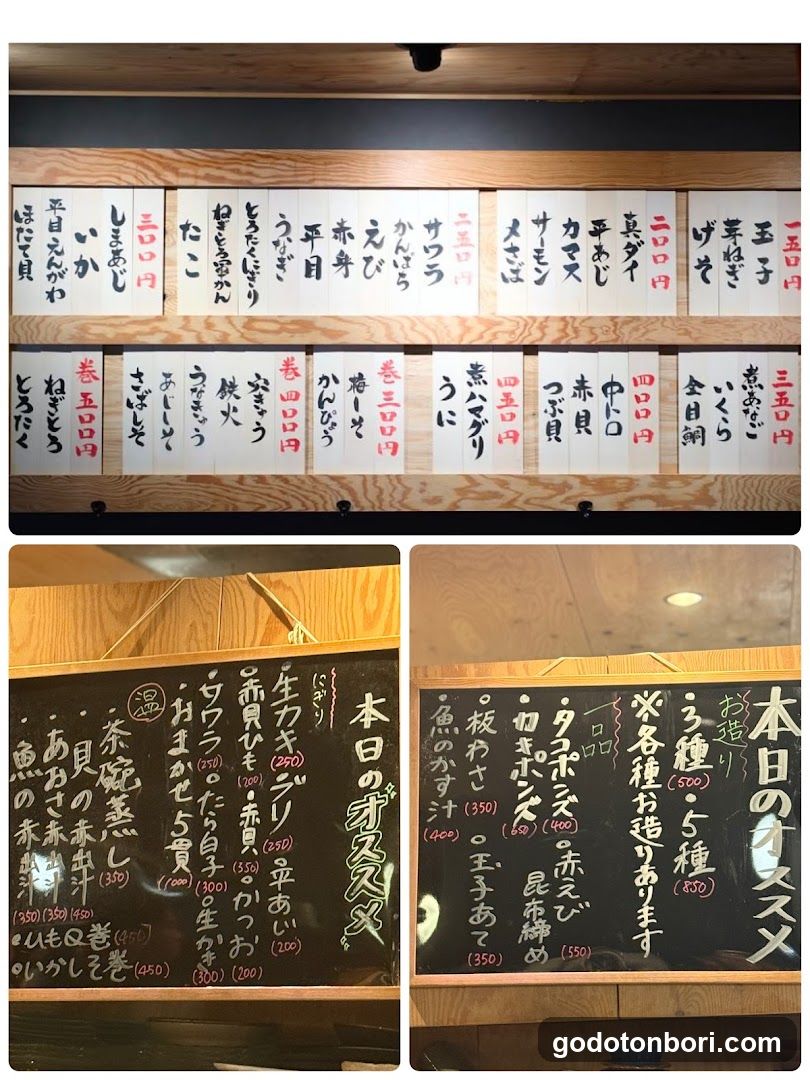 一五〇円
玉子
芽ねぎ
げそ
二〇〇円
真ダイ
平あじ
カマス
サーモン
〆さば
二五〇円
サワラ
かんぱち
えび
赤身
平目
うなぎ
とろたくにぎり
ねぎとろ軍かん
たこ
三〇〇円
しまあじ
いか
平目えんがわ
ほたて貝
三五〇円
煮あなご
いくら
金目鯛
四〇〇円
中トロ
赤貝
つぶ貝
四五〇円
煮ハマグリ
うに
巻三〇〇円
梅しそ
かんぴょう
巻四〇〇円
穴きゅう
鉄火
うなきゅう
あじしそ
さばしそ
巻五〇〇円
ねぎとろ
とろたく
本日のオススメ
にぎり
・生カキ(250) ブリ(250) ・平あじ(200)
・赤貝ひも(200) ・赤貝(350) ・かつお(200)
・サワラ(250) ・たら白子(300) ・生かき(300)
・おまかせ5貫(1000)
温
・茶碗蒸し(350)
・貝の赤出汁(450)
・あおさ赤出汁(350)
・魚の赤出汁(350)
・ひもQ巻(450)
・いかしそ巻(450)
本日のオススメ
お造り
・3種(500) ・5種(850)
※各種お造りあります
一品
・タコポンズ(400) ・赤えび昆布締め(550)
・カキポンズ(650)
・板わさ(350) ・玉子あて(350)
・魚のかす汁(400)
godotonbori.com